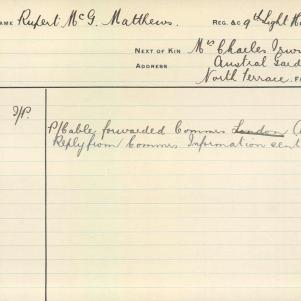 NAME Rupert McG. Matthews. REG. &C 9th Light Ho
NEXT OF KIN Mrs Charles Irwin
ADDRESS Austral Gard
North Terrace.
P/Cable forwarded Commrs London
Reply from Commrs. Information sent